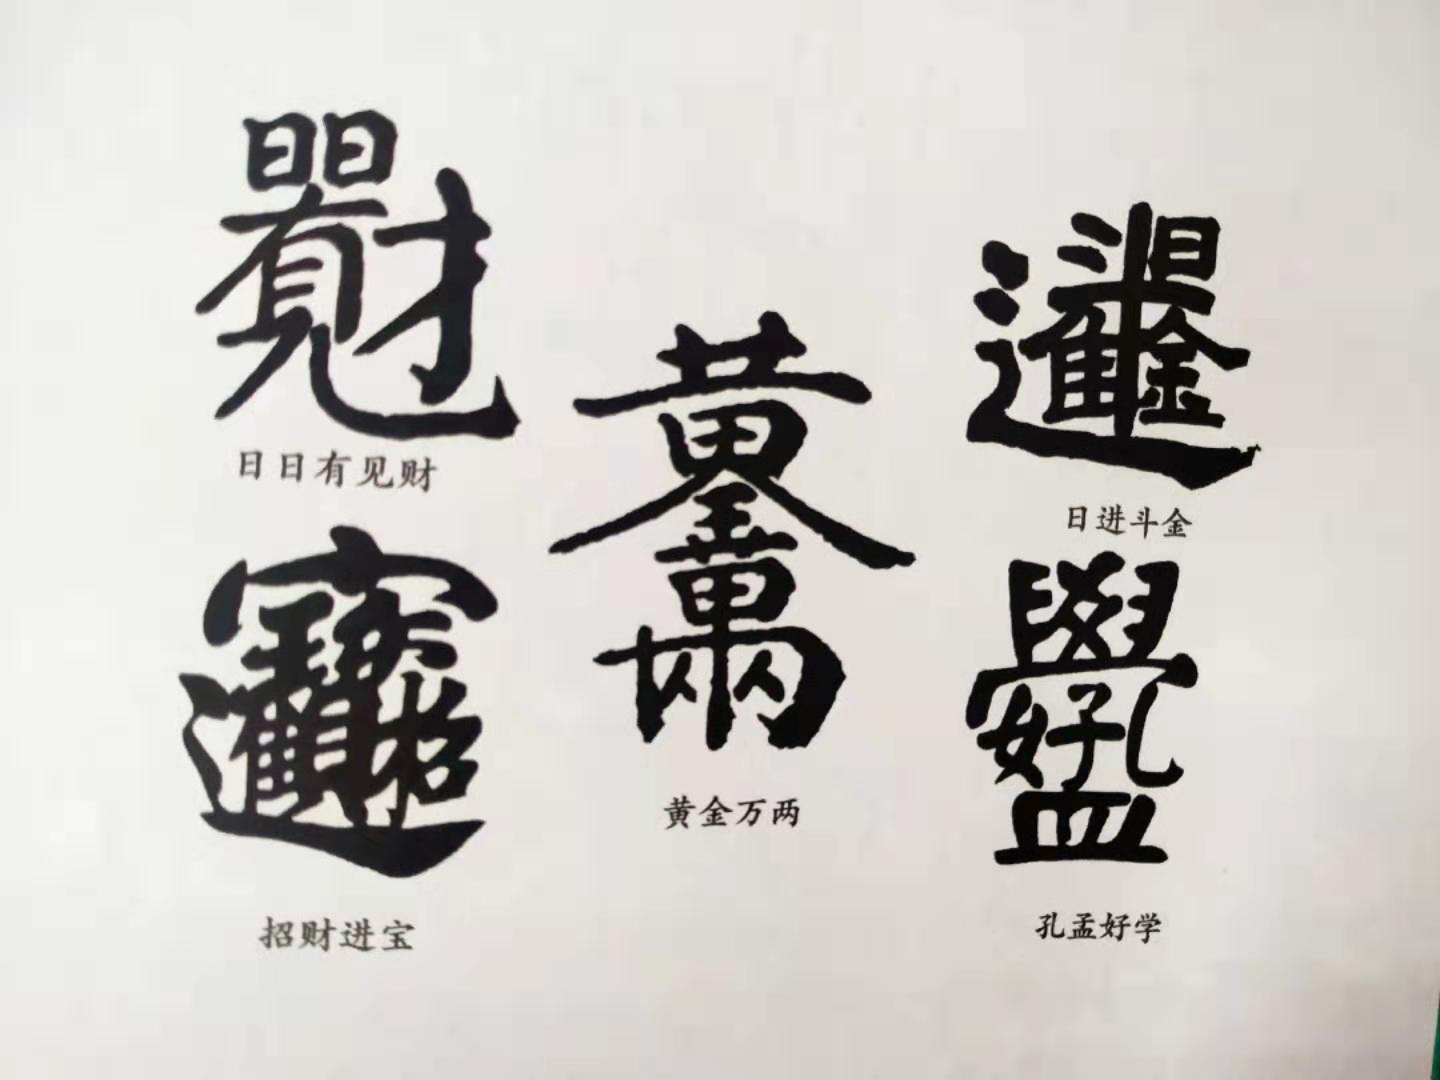 日日有见财
日进斗金
黄金万两
招财进宝
孔孟好学